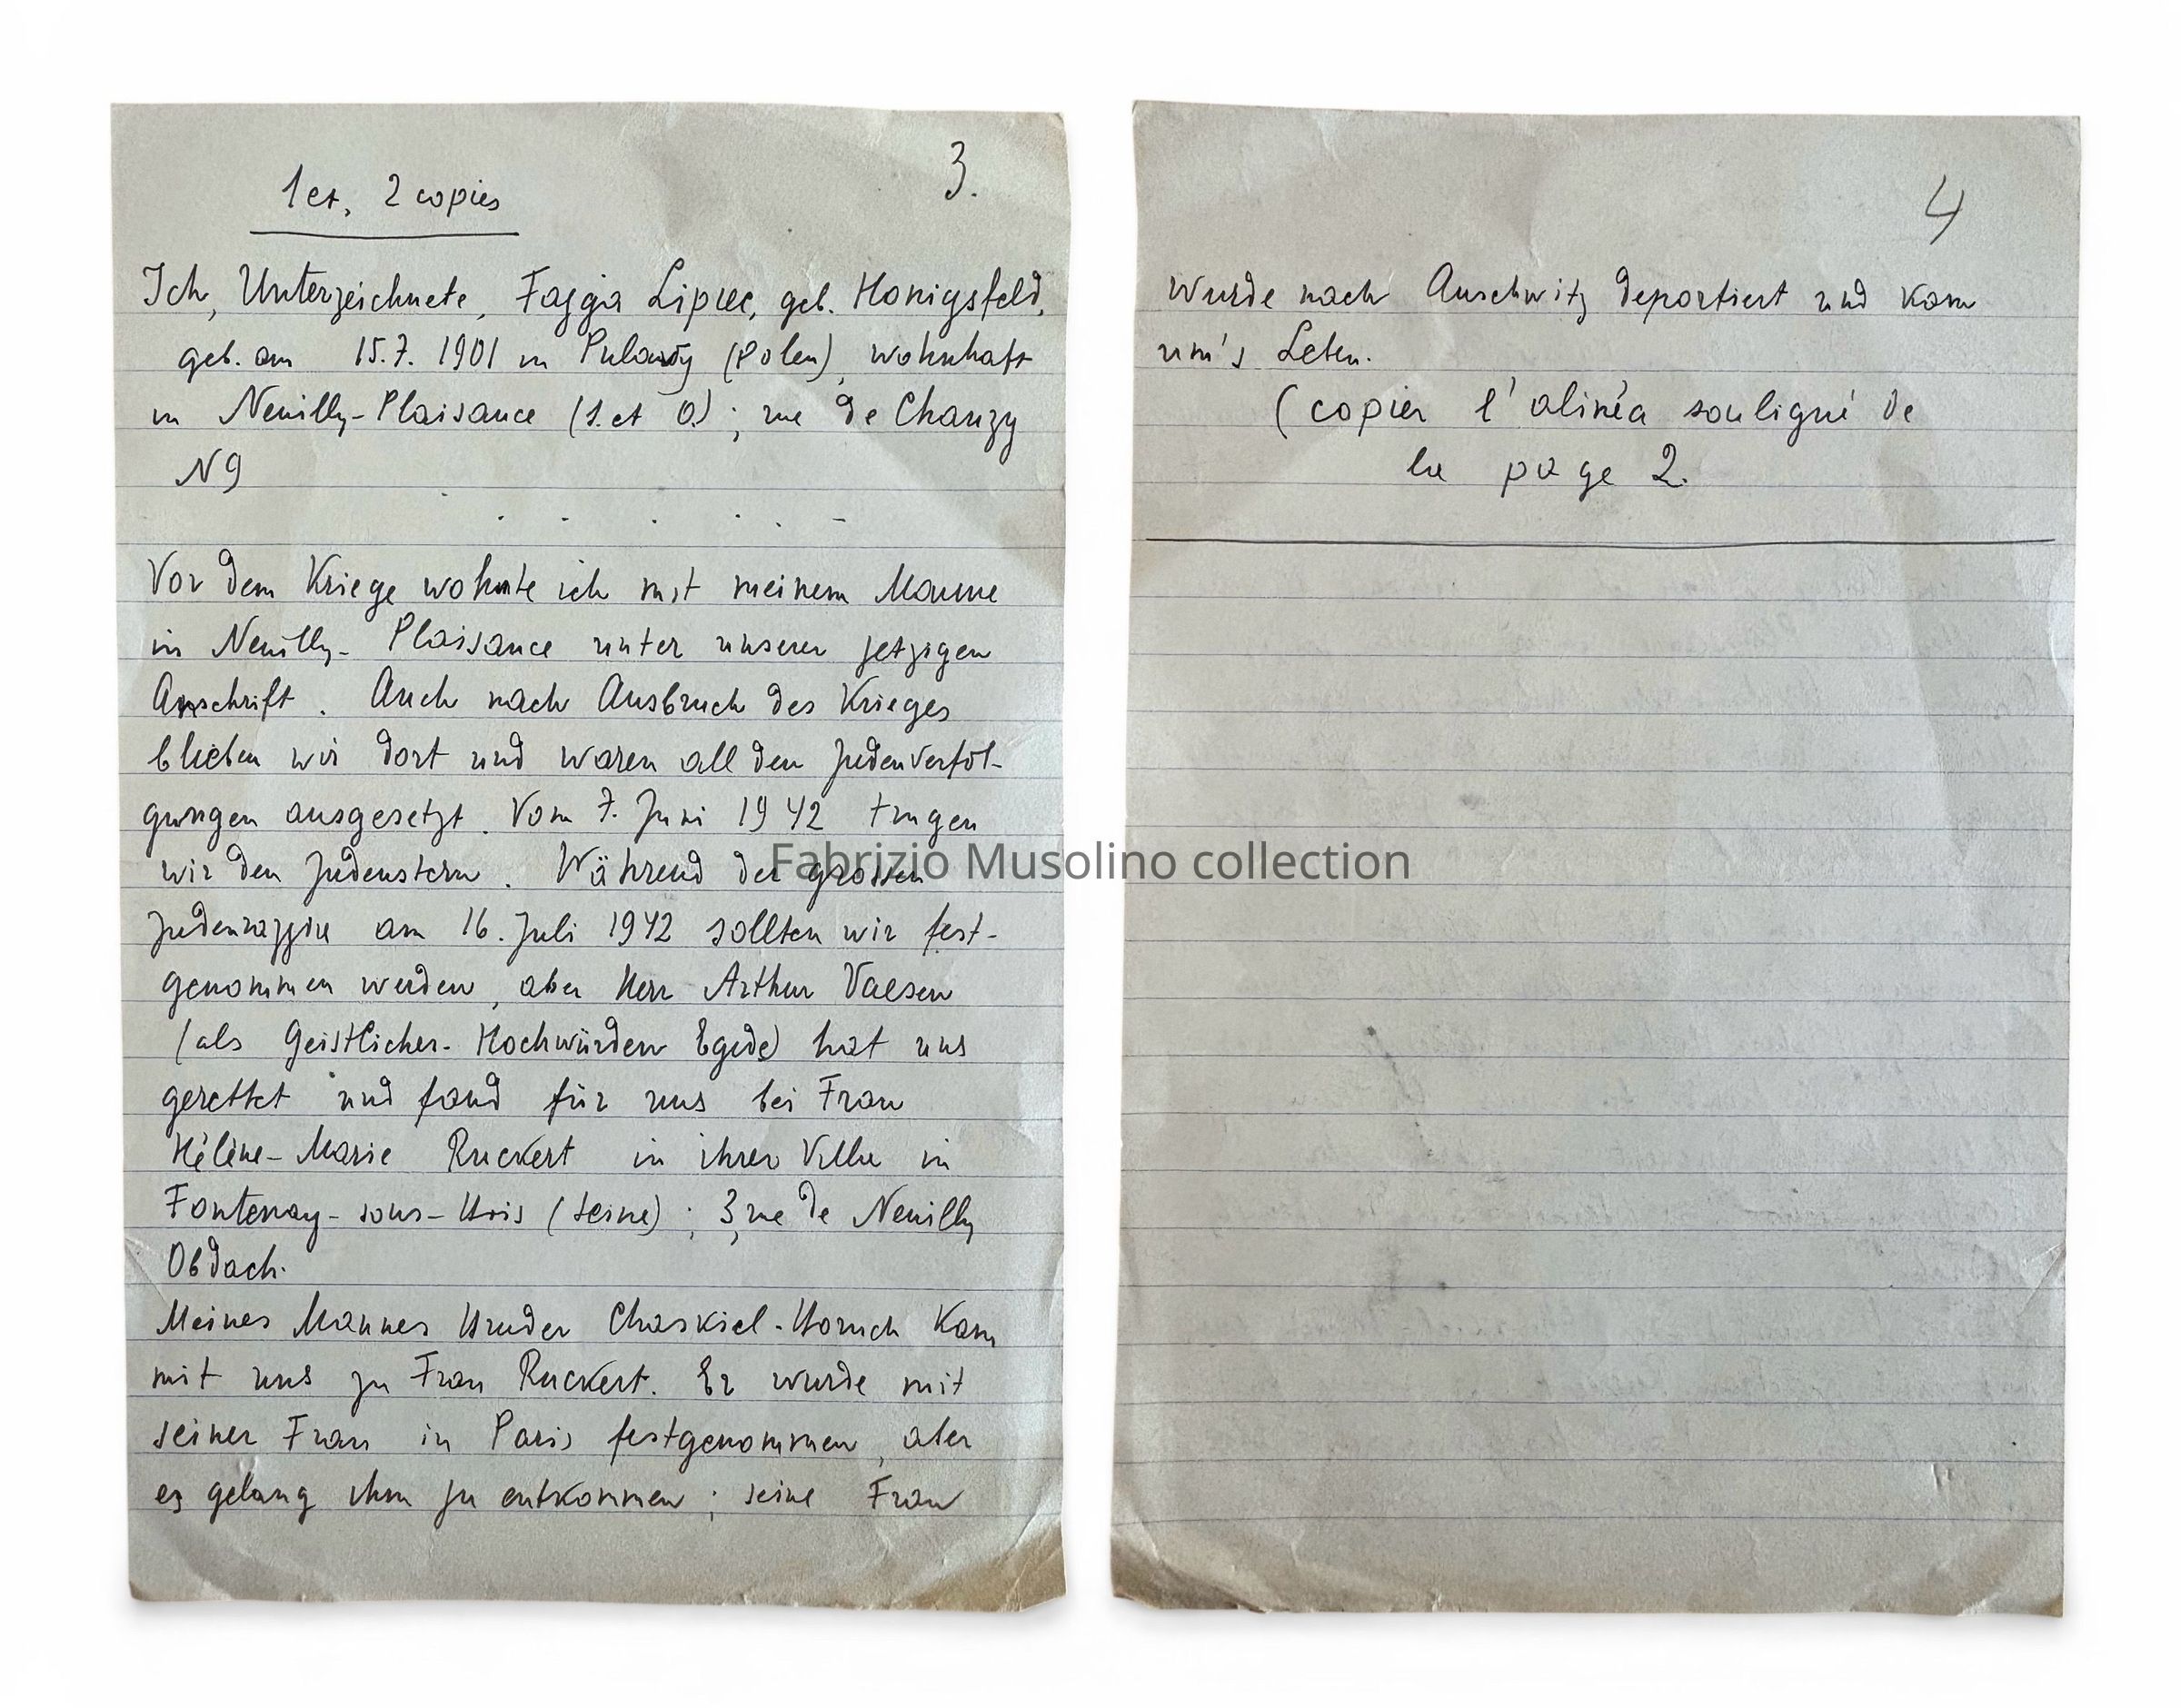 3.
1 et, 2 copies
Ich, Unterzeichnete, Fajga Lipiec, geb. Honigsfeld,
geb. am 15.7. 1901 in Pulawy (Polen), wohnhaft
in Neuilly-Plaisance (S. et O.); rue de Chanzy
N 9
Vor dem Kriege wohnte ich mit meinem Manne
in Neuilly-Plaisance unter unserer jetzigen
Anschrift. Auch nach Ausbruch des Krieges
blieben wir dort und waren all den Judenverfol-
gungen ausgesetzt. Vom 7. Juni 1942 trugen
wir den Judenstern. Während der grossen
Judenrazzie am 16. Juli 1942 sollten wir fest-
genommen werden, aber Herr Arthur Vaesen
(als Geistlicher-Hochwürden Egide) hat uns
gerettet und fand für uns bei Frau
Hélène-Marie Ruckert in ihrer Villa in
Fontenay-sous-Bois (Seine); 3, rue de Neuilly
Obdach.
Meines Mannes Bruder Chaskiel-Boruch kam
mit uns zu Frau Ruckert. Er wurde mit
seiner Frau in Paris festgenommen, aber
es gelang ihm zu entkommen; seine Frau
4
wurde nach Auschwitz deportiert und kam
um's Leben.
(copier l'alinéa souligné de
la page 2.
Fabrizio Musolino collection